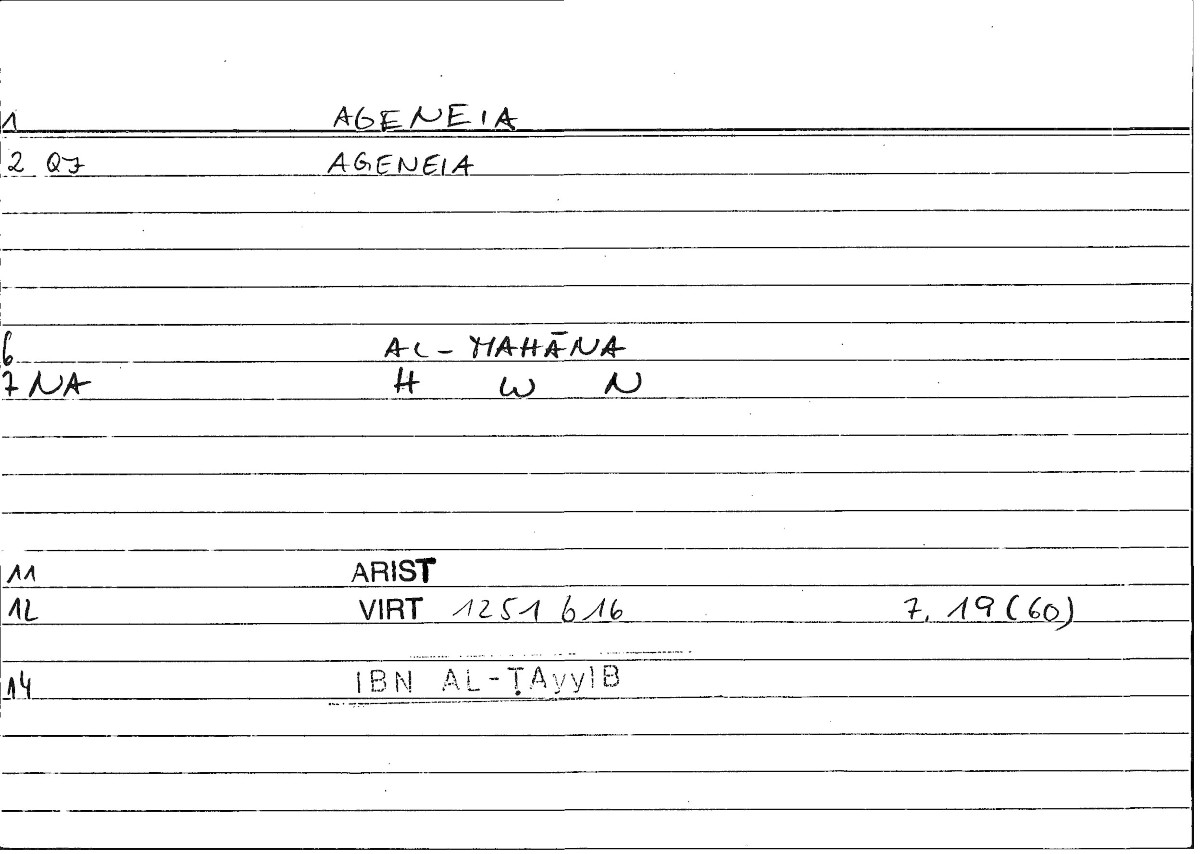 1 AGENEIA
2 Q7 AGENEIA
6 AL-MAHĀNA
7 NA H W N
11 ARIST
12 VIRT 1251 b 16 7, 19 (60)
14 IBN AL-ṬAyyIB